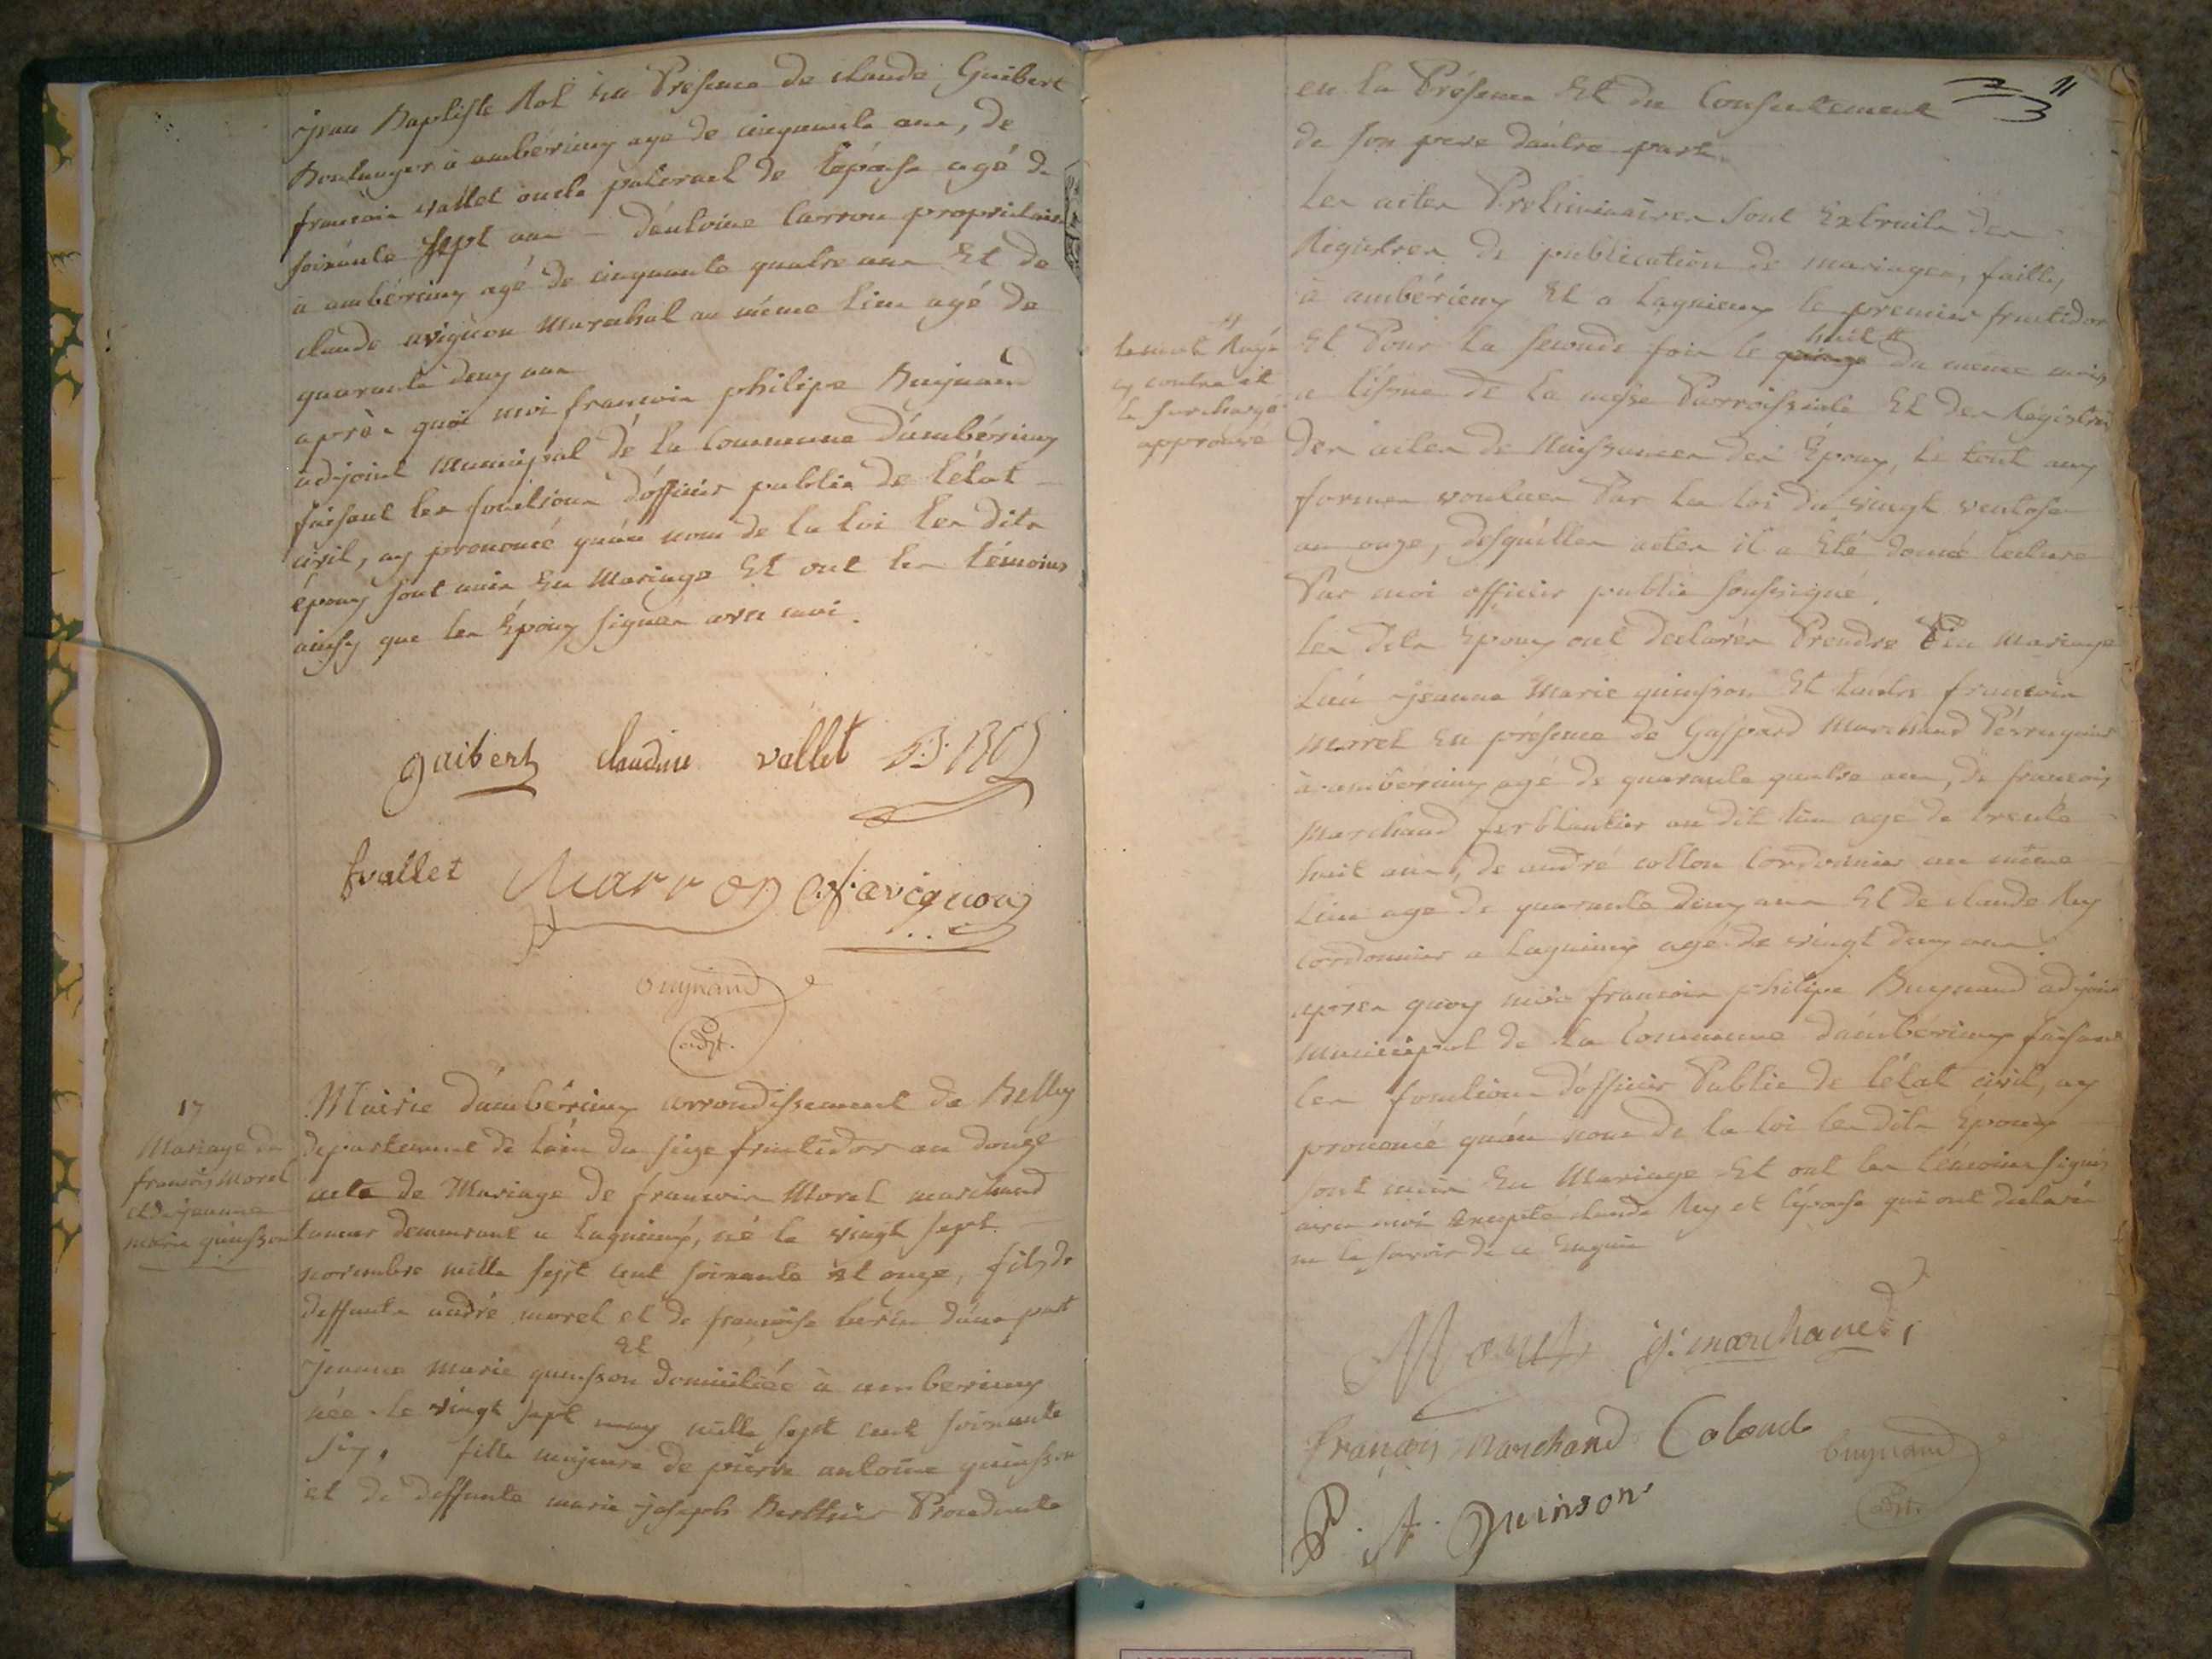 jean Baptiste Rol En Présence de claude Guibert
Boulanger à ambérieux agé de cinquante ans, de
francois vallet oncle paternel de l'épouse agé de
soixante sept ans – d'antoine Carron propriétaire
à ambérieux agé de cinquante quatre ans Et de
claude avignon Marechal au même lieu agé de
quarante deux ans
après quoi moi francois philipe Bugnand
adjoint municipal de la Commune d'ambérieux
faisant les fonctions d'officier public de l'état –
civil, ay prononcé qu'au nom de la loi les dits
époux sont unis En Mariage Et ont les témoins
ainsy que les Époux signés avec moi.
guibert claudine vallet
fvallet Marron avignon
Bugnand
adjt.
17
Mariage de
francois Morel
et de jeanne
marie quinsson
Mairie d'ambérieux arrondissement de Belley
departement de l'ain du seize fructidor an douze
acte de Mariage de francois Morel marchand
tanneur demeurant a Lagnieux, né le vingt sept
novembre mille sept cent soixante et onze, fils de
deffunts andré morel et de francoise d'une part
Et
jeanne marie quinsson domiciliée à amberieux
née le vingt sept may mille sept cent soixante
six, fille majeure de pierre antoine quinsson
et de deffunte marie joseph Berthier Procedante
11
en la Présence Et du Consentement
de son pere d'autre part.
Les actes Preliminaires sont Extraits des
Registres de publication de mariages, faittes
a ambérieux Et a Lagnieux le premier fructidor
huit #
Et Pour la seconde fois le quinze du même mois
#
le mot Rayé
cy contre et
le surchargé
approuvé
a l'issue de la messe Parroissiale Et des Registres
des actes de Naissances des Époux, le tout aux
formes voulues Par la loi du vingt ventose
an onze, desquelles actes il a été donné lecture
Par moi officier public soussigné.
les dits Epoux ont declarés Prendre En Mariage
L'un jeanne Marie quinsson Et L'autre francois
morel En présence de Gaspard Marchand Pérruquier
à ambérieux agé de quarante quatre ans, de francois
Marchand ferblantier au dit lieu agé de trente –
huit ans, de andré collon Cordonnier au même
Lieu agé de quarante deux ans Et de claude Rey
Cordonnier a Lagnieux agé de vingt deux ans
apres quoy moi francois philipe Bugnand adjoint
municipal de la Commune d'ambérieux faisant
les fonctions d'officier Public de l'état civil, ay
prononcé qu'au nom de la loi les dits Époux
sont unis En Mariage Et ont les témoins signés
avec moi Excepté claude Rey et l'épouse qui ont declarés
ne le savoir de ce Enquis
Morel g. marchand
françois marchand
Bugnand
adjt.
P. A. Quinson